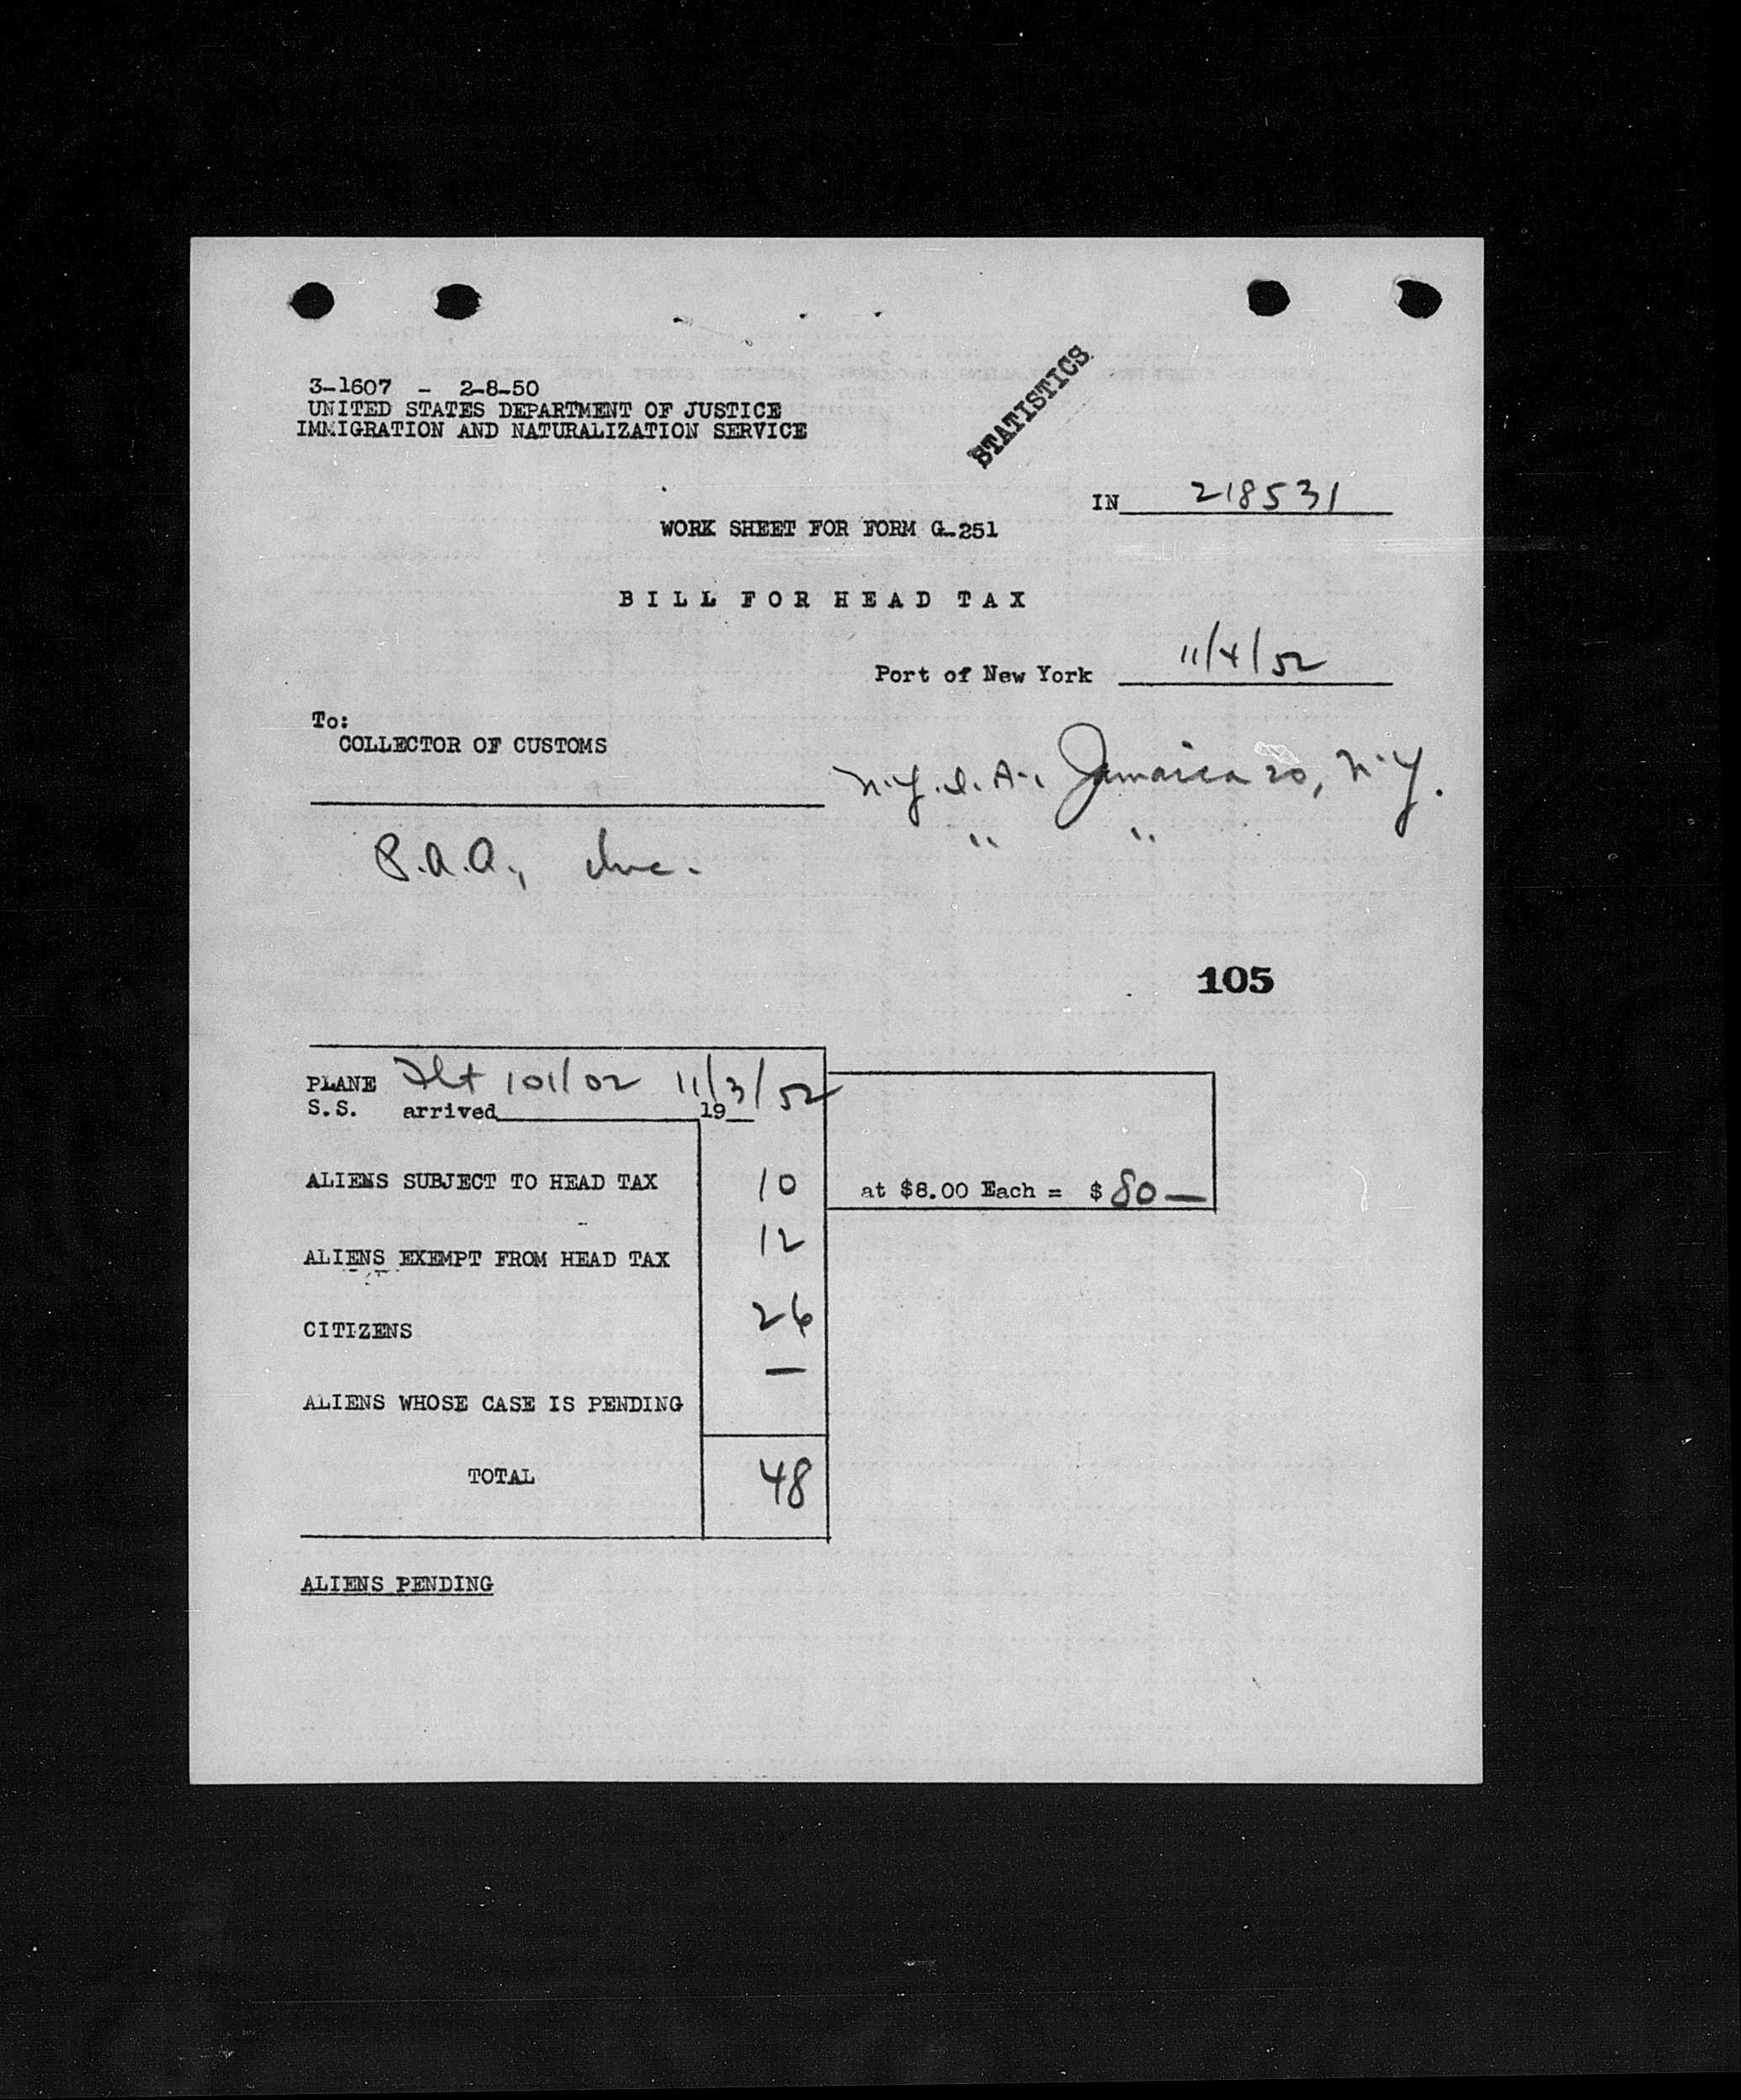 3-1607 - 2-8-50
UNITED STATES DEPARTMENT OF JUSTICE
IMMIGRATION AND NATURALIZATION SERVICE
STATISTICS
IN 218531
WORK SHEET FOR FORM G-251
BILL FOR HEAD TAX
Port of New York 11/4/52
To:
COLLECTOR OF CUSTOMS
N.Y.I.A., Jamaica 20, N.Y.
" "
P.A.A., Inc.
105
PLANE Flt 101/02 11/3/52
S.S. arrived 19
ALIENS SUBJECT TO HEAD TAX 10 at $8.00 Each = $ 80 —
ALIENS EXEMPT FROM HEAD TAX 12
CITIZENS 26
ALIENS WHOSE CASE IS PENDING —
TOTAL 48
ALIENS PENDING